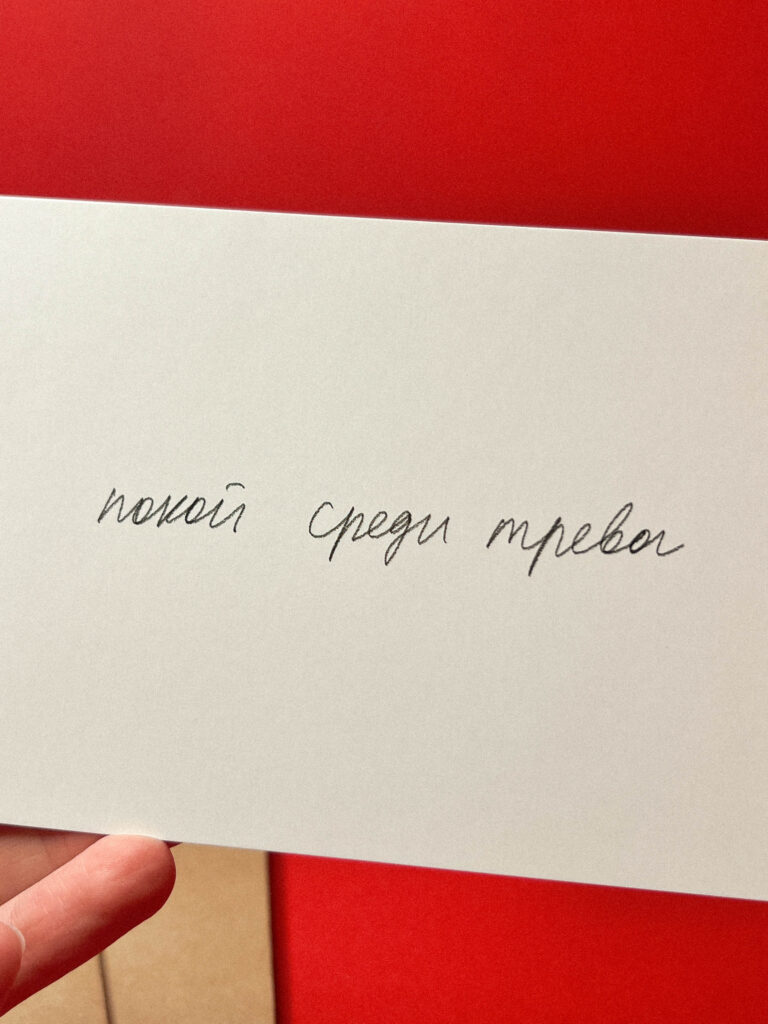 покой среди тревог